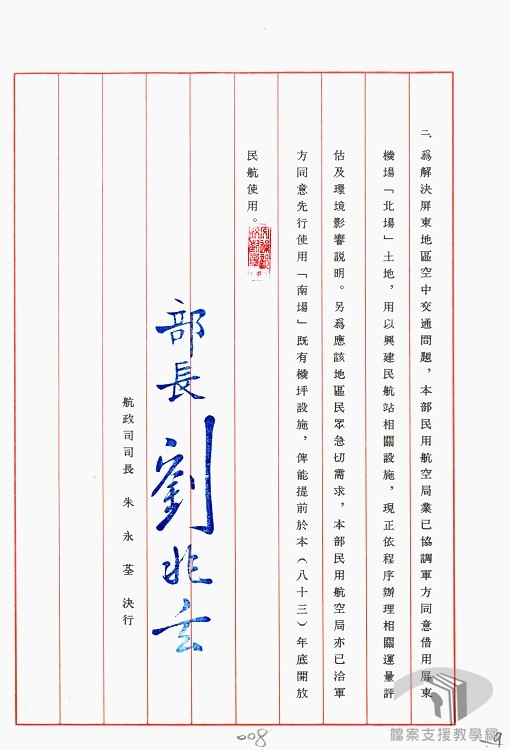 二、爲解決屏東地區空中交通問題，本部民用航空局業已協調軍方同意借用屏東
機場「北場」土地，用以興建民航站相關設施，現正依程序辦理相關運量評
估及環境影響説明。另爲應該地區民眾急切需求，本部民用航空局亦已洽軍
方同意先行使用「南場」既有機坪設施，俾能提前於本(八十三)年底開放
民航使用。
部長 劉兆玄
航政司司長 朱永荃 決行
008
9
檔案支援教學網